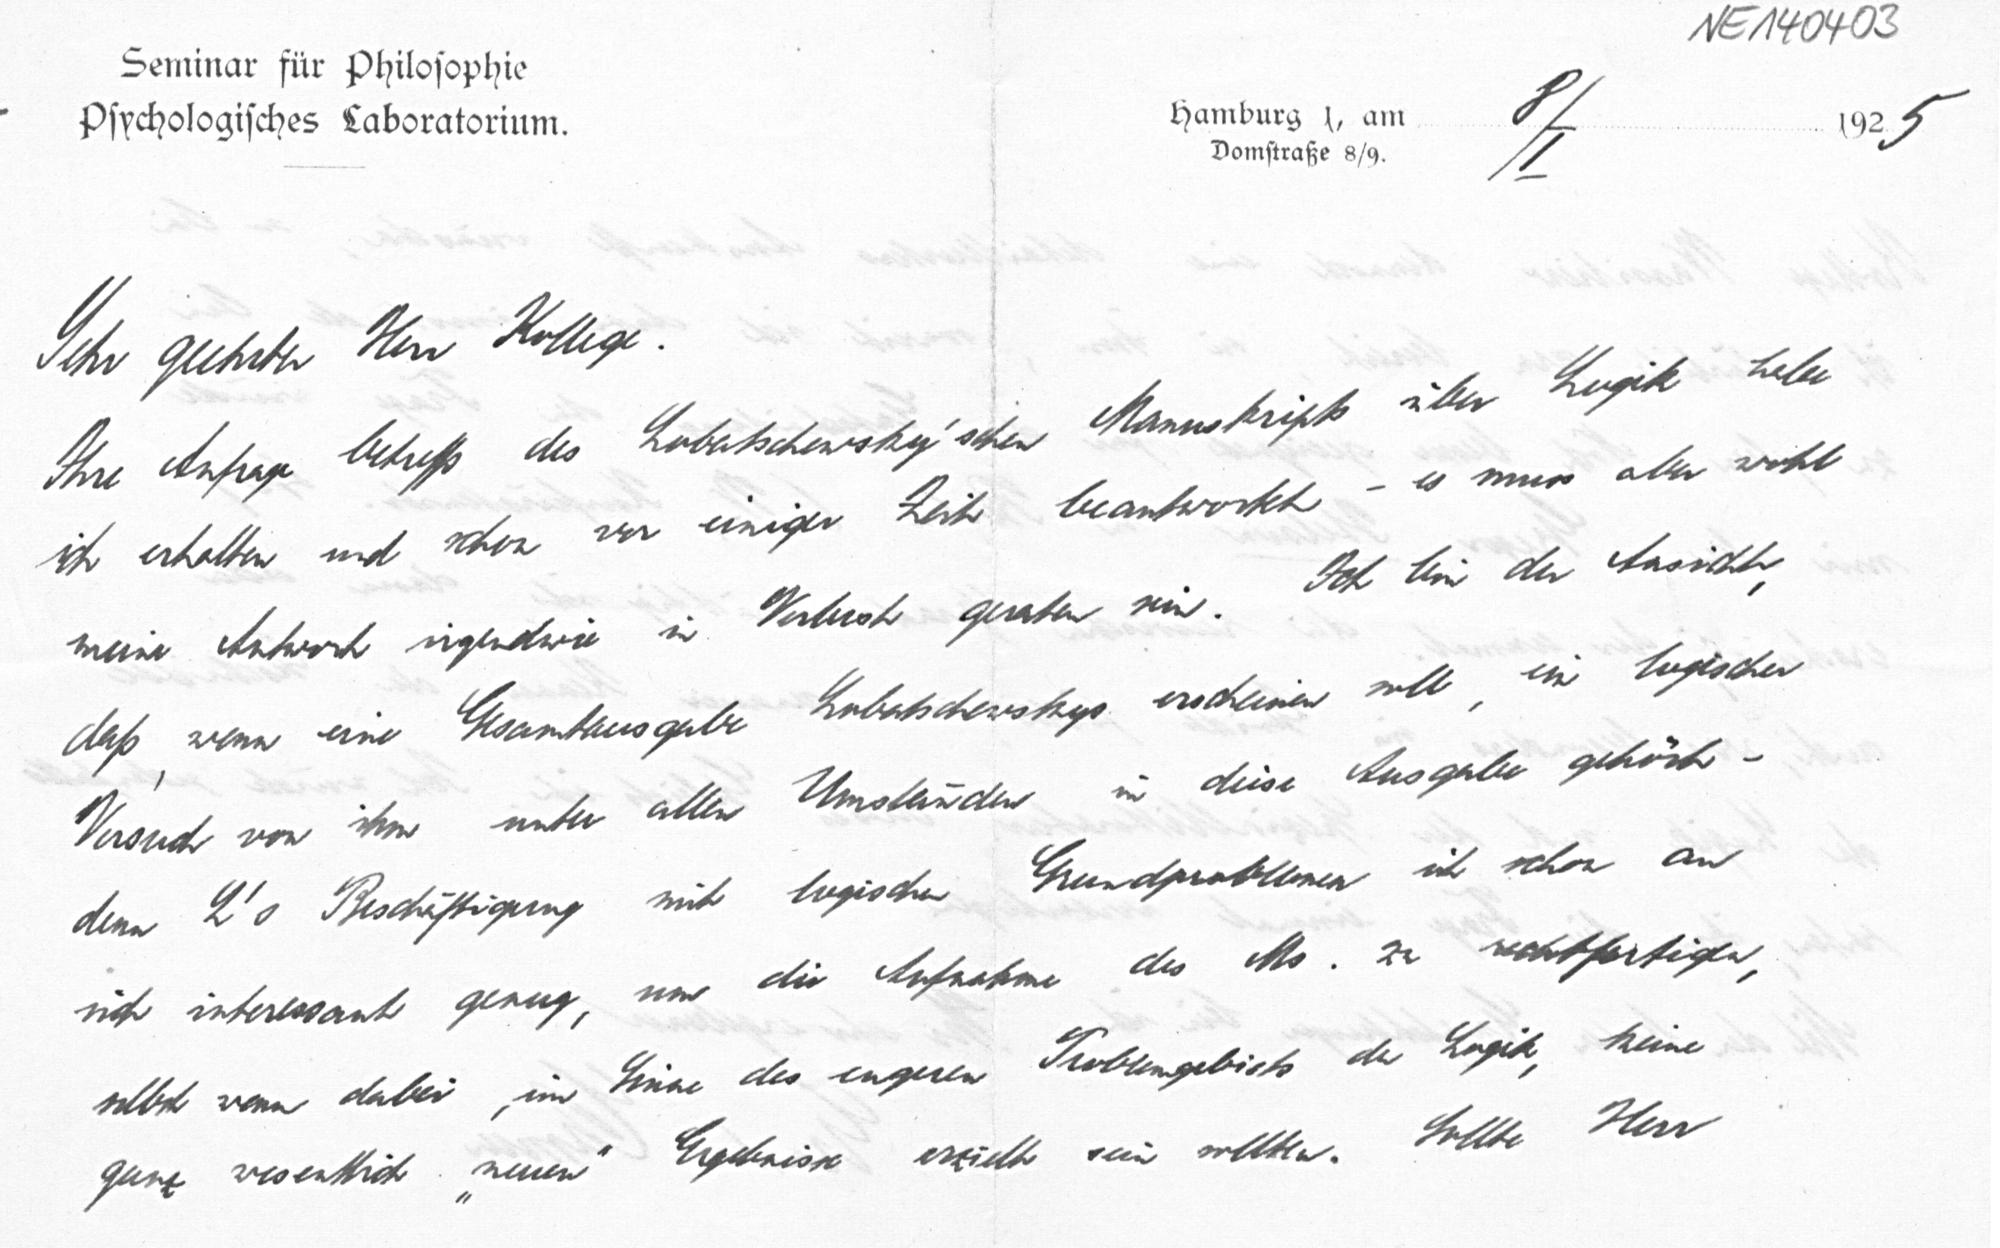 NE140403
Seminar für Philosophie
Psychologisches Laboratorium.
Hamburg 1, am 8/I 1925
Domstraße 8/9.
Sehr geehrter Herr Kollege.
Ihre Anfrage betreffs des Lobatschewsky'schen Manuskripts über Logik habe
ich erhalten und schon vor einiger Zeit beantwortet – es muss aber wohl
meine Antwort irgendwie in Verlust geraten sein. Ich bin der Ansicht,
daß, wenn eine Gesamtausgabe Lobatschewskys erscheinen soll, ein logischer
Versuch von ihm unter allen Umständen in diese Ausgabe gehört –
denn L's Beschäftigung mit logischen Grundproblemen ist schon an
sich interessant genug, um die Aufnahme des Ms. zu rechtfertigen,
selbst wenn dabei, im Sinne des engeren Problemgebiets der Logik, keine
ganz wesentlich „neuen" Ergebnisse erzielt sein sollten. Sollte Herr